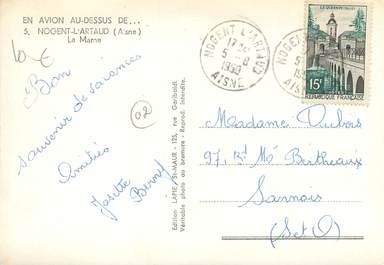 EN AVION AU-DESSUS DE...
5. NOGENT-L'ARTAUD (Aisne)
La Marne
10 €
Bon
souvenir de vacances
Amitiés
Josette
02
Edition LAPIE, St-MAUR - 125, rue Garibaldi
Véritable photo au bromure - Reprod. Interdite.
NOGENT L'ARTAUD
17 30
5 - 8
1959
AISNE
NOGENT L'ARTAUD
AISNE
LE QUESNOY
15F
REPUBLIQUE FRANÇAISE
Madame Dubois
97, Bd Mel Berthieaux
Sannois
(S et O)